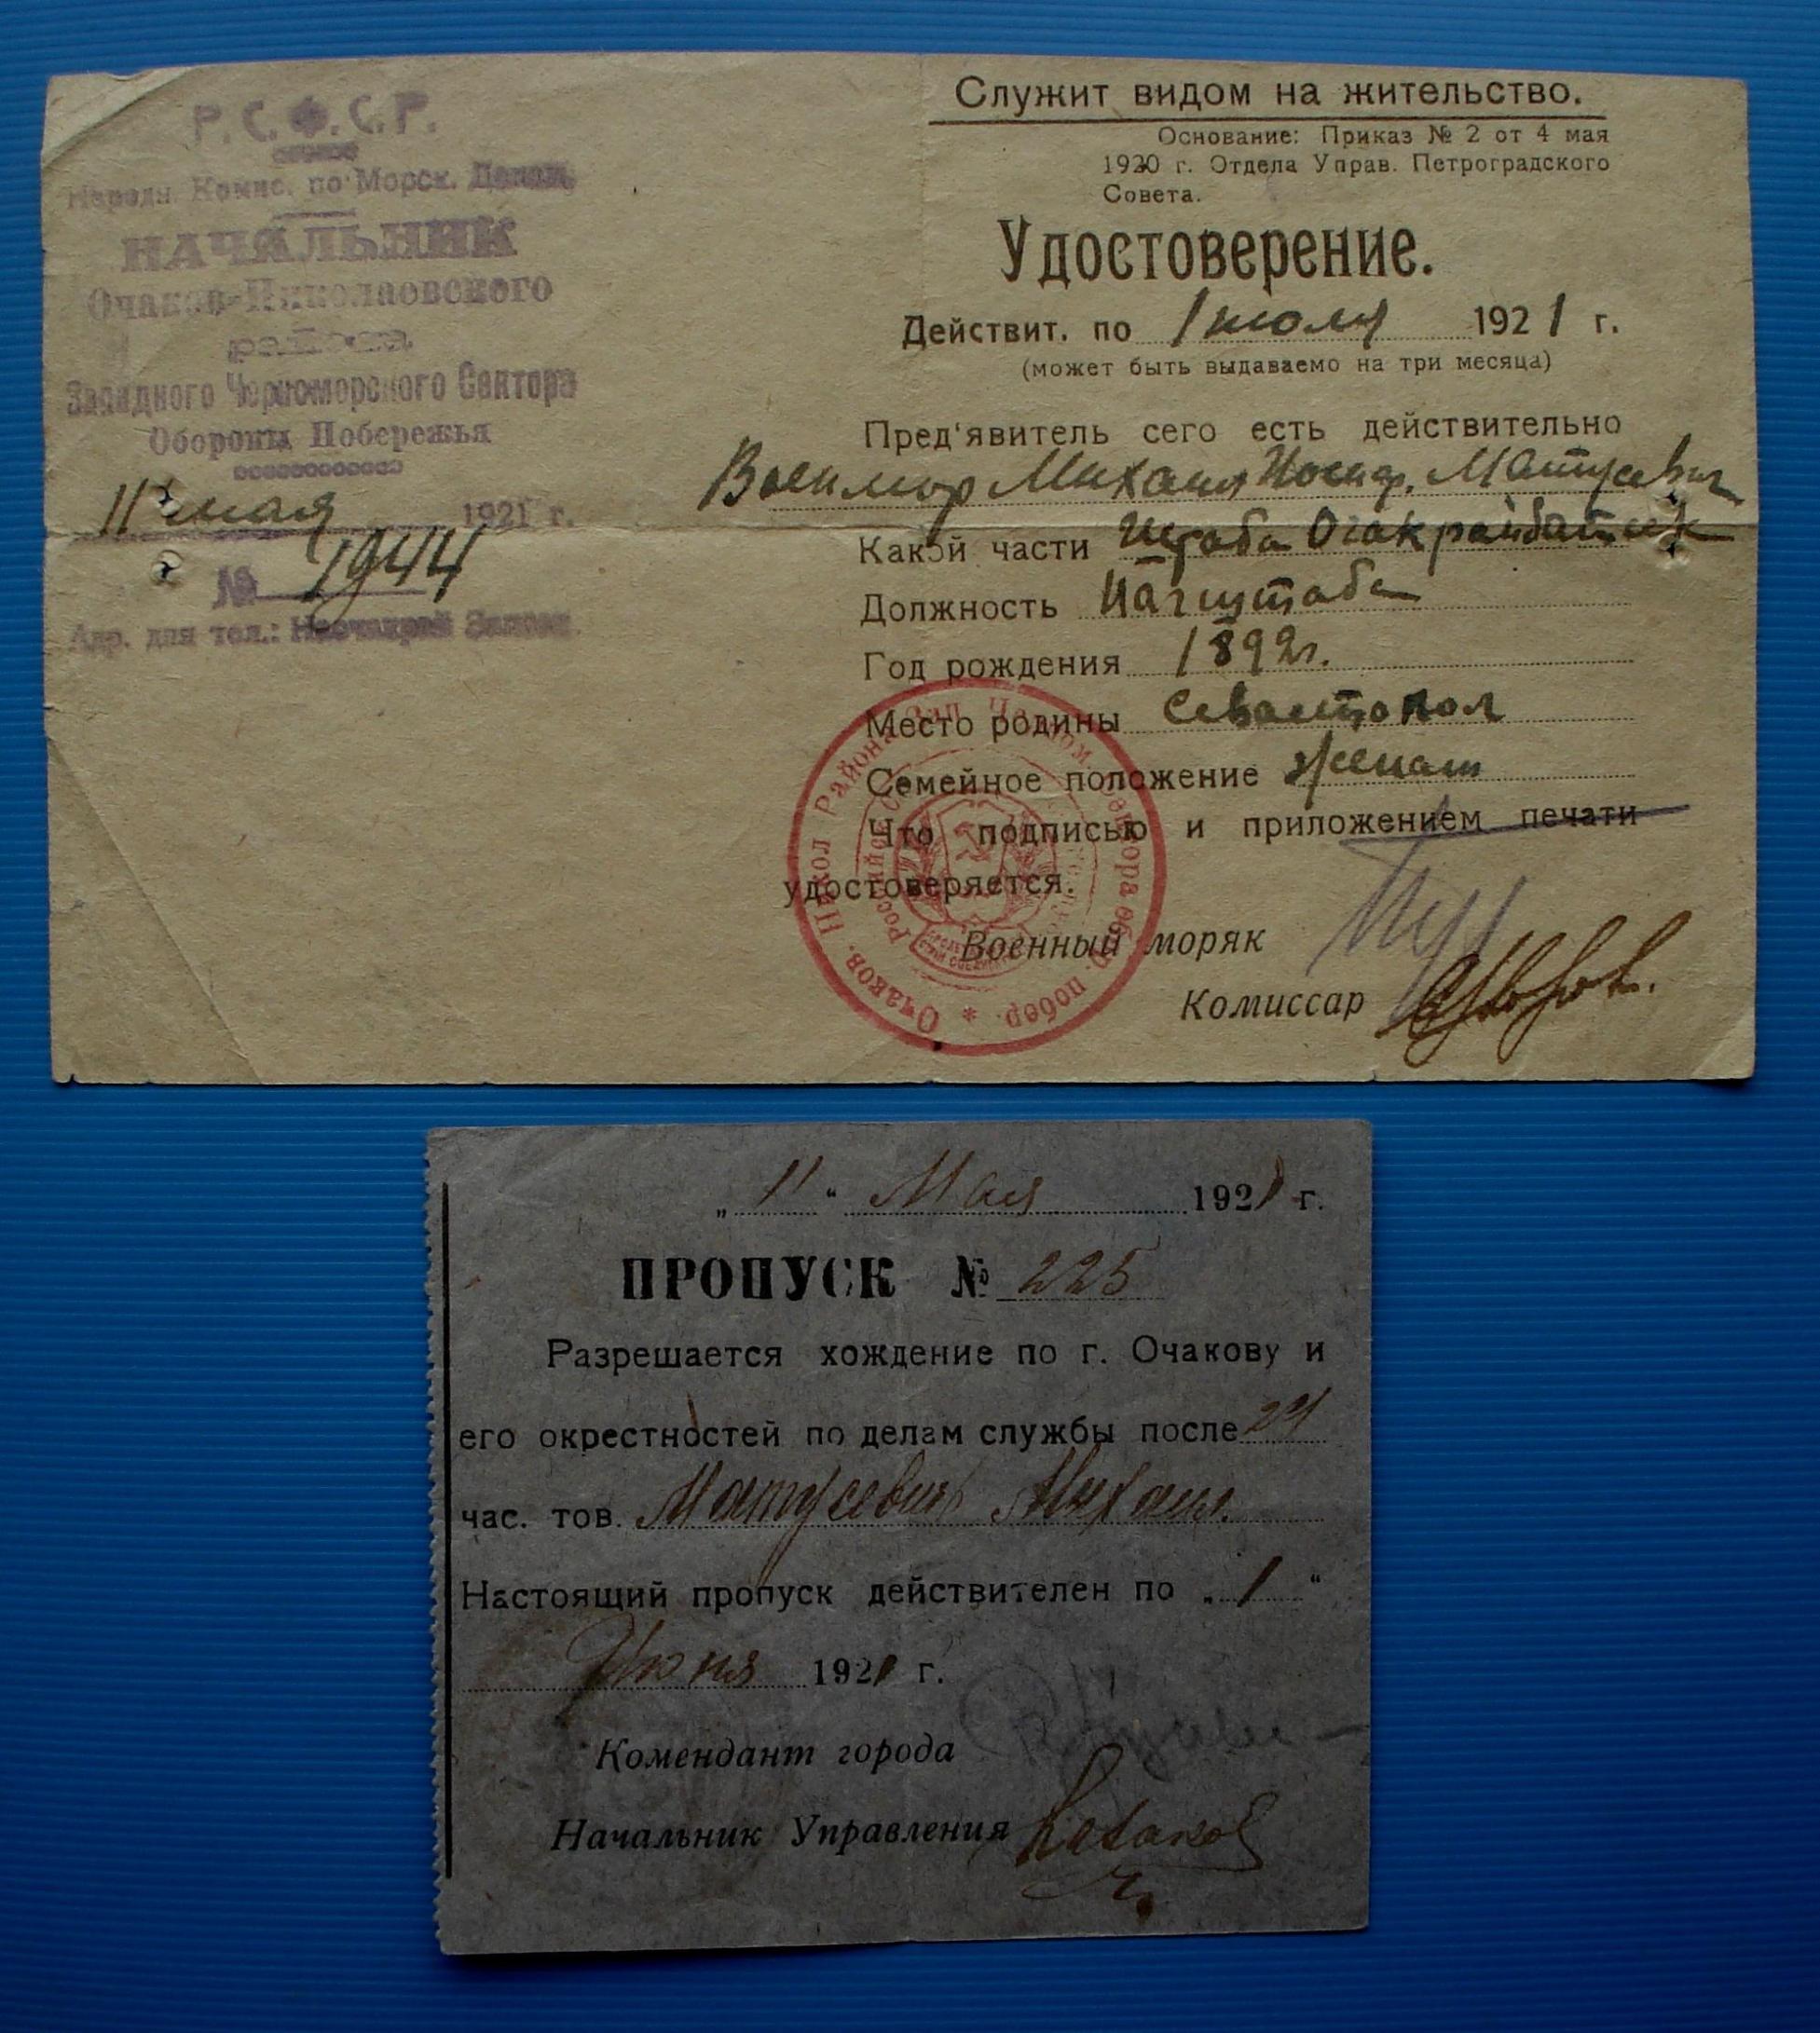 Р.С.Ф.С.Р.
Народн. Комис. по Морск. Делам
НАЧАЛЬНИК
Очаков-Николаевского
района
Западного Черноморского Сектора
Обороны Побережья
11 мая 1921 г.
№ 1944
Адр. для тел.:
Служит видом на жительство.
Основание: Приказ № 2 от 4 мая
1920 г. Отдела Управ. Петроградского
Совета.
Удостоверение.
Действит. по 1 июля 1921 г.
(может быть выдаваемо на три месяца)
Пред'явитель сего есть действительно
Военмор Михаил Иосиф. Матусевич
Какой части Штаба
Должность Наштаба
Год рождения 1892г.
Место родины Севастопол
Семейное положение женат
Что подписью и приложением печати
удостоверяется.
Военный моряк
Комиссар
Очаков. Никол Района Зап. Черном. Сектора обор. побер. *
„11“ Мая 1921 г.
ПРОПУСК № 225
Разрешается хождение по г. Очакову и
его окрестностей по делам службы после
час. тов. Матусевич Михаил.
Настоящий пропуск действителен по „1“
Июня 1921 г.
Комендант города
Начальник Управления